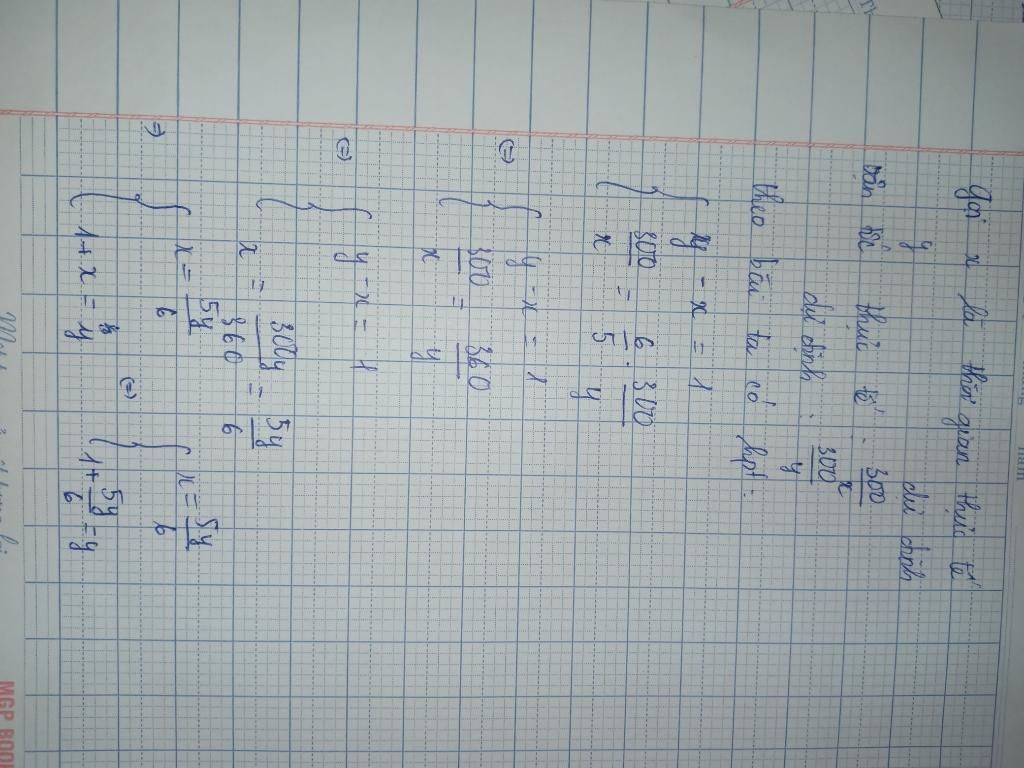 Gọi x là thời gian thực tế
y dự định
vận tốc thực tế : 300/x
dự định : 300/y
theo bài ta có hpt :
{ y - x = 1
300/x = 6/5 . 300/y
(=) { y - x = 1
300/x = 360/y
(=) { y - x = 1
x = 300y/360 = 5y/6
=) { x = 5y/6
1 + x = y
(=) { x = 5y/6
1 + 5y/6 = y
MGP BOO